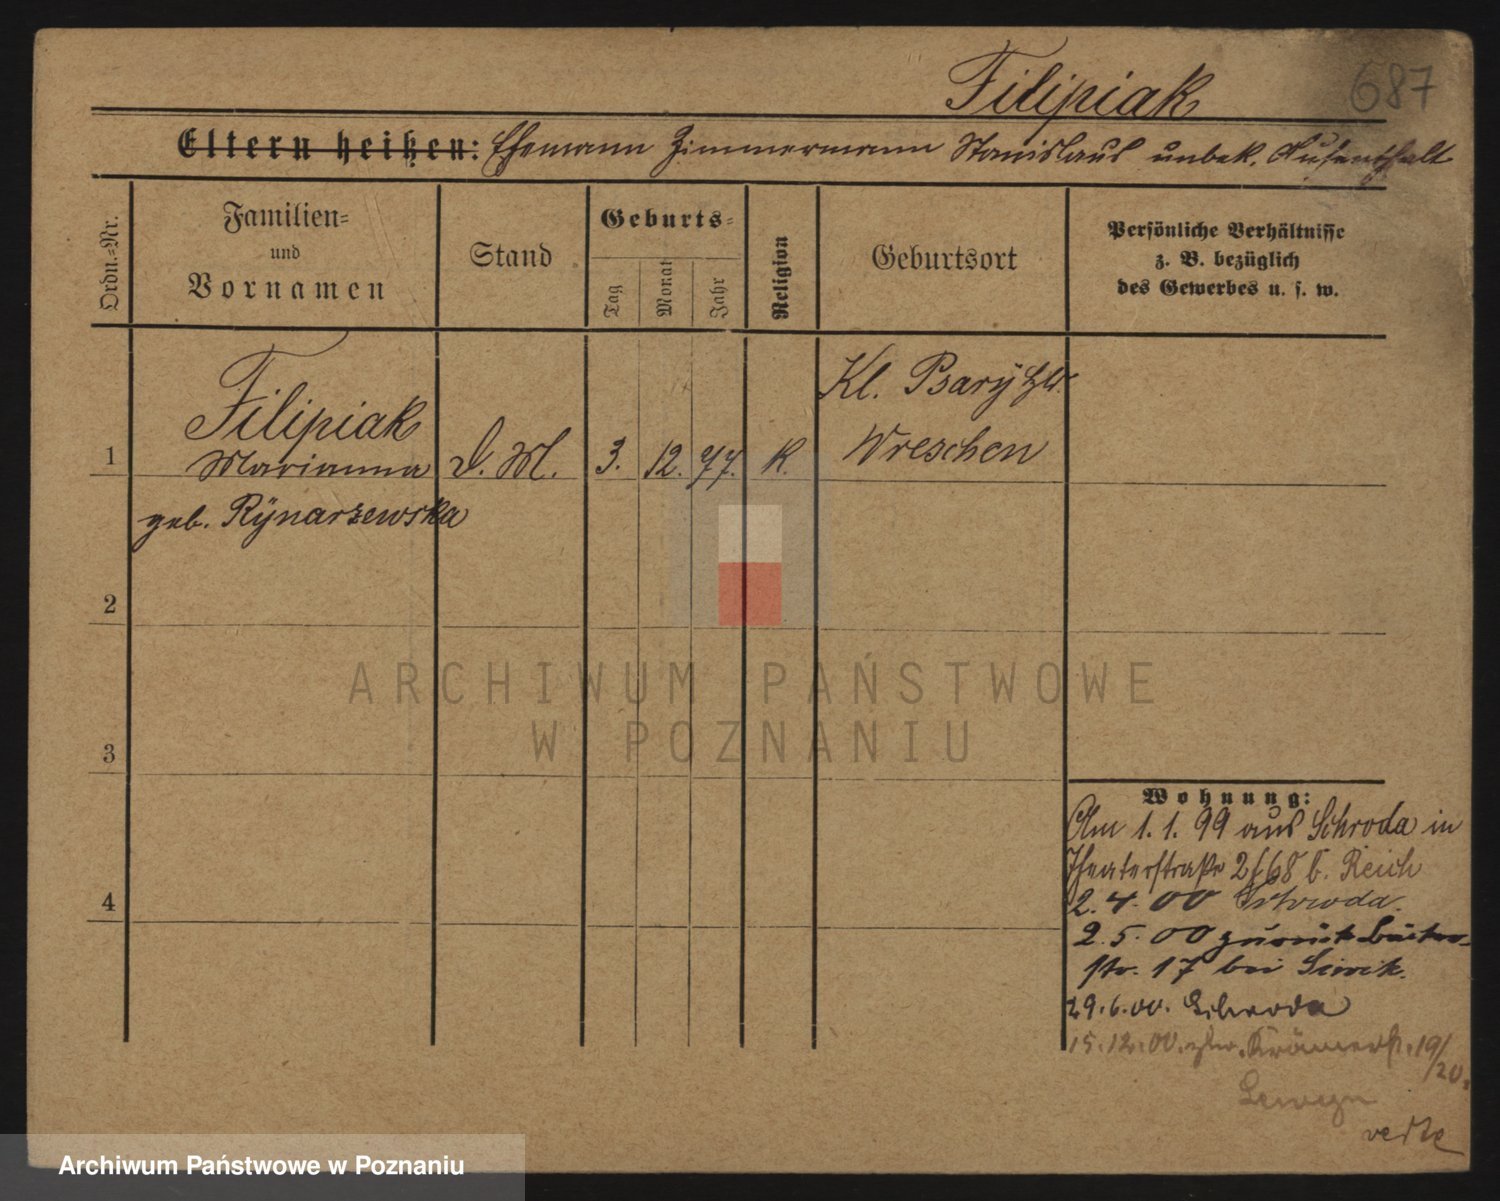 Filipiak 687
Eltern heißen: Ehemann Zimmermann Stanislaus unbek. Aufenthalt
Ordn.-Nr.
Familien-
und
Vornamen
Stand
Geburts-
Tag
Monat
Jahr
Religion
Geburtsort
Persönliche Verhältnisse
z. B. bezüglich
des Gewerbes u. s. w.
1
Filipiak
Marianna
geb. Rÿnarzewska
D. M.
3.
12.
77.
K.
Kl. Psarÿ
Wreschen
2
3
4
ARCHIWUM PAŃSTWOWE
W POZNANIU
Wohnung:
Am 1. 1. 99 aus Schroda in
Theaterstraße 2/68 b. Reich
2. 4. 00 Schroda.
2. 5. 00 zurück
str. 17 bei
29. 6. 00. Schroda
15. 12. 00. Krämerstr. 19/20.
Lewyn
verte
Archiwum Państwowe w Poznaniu